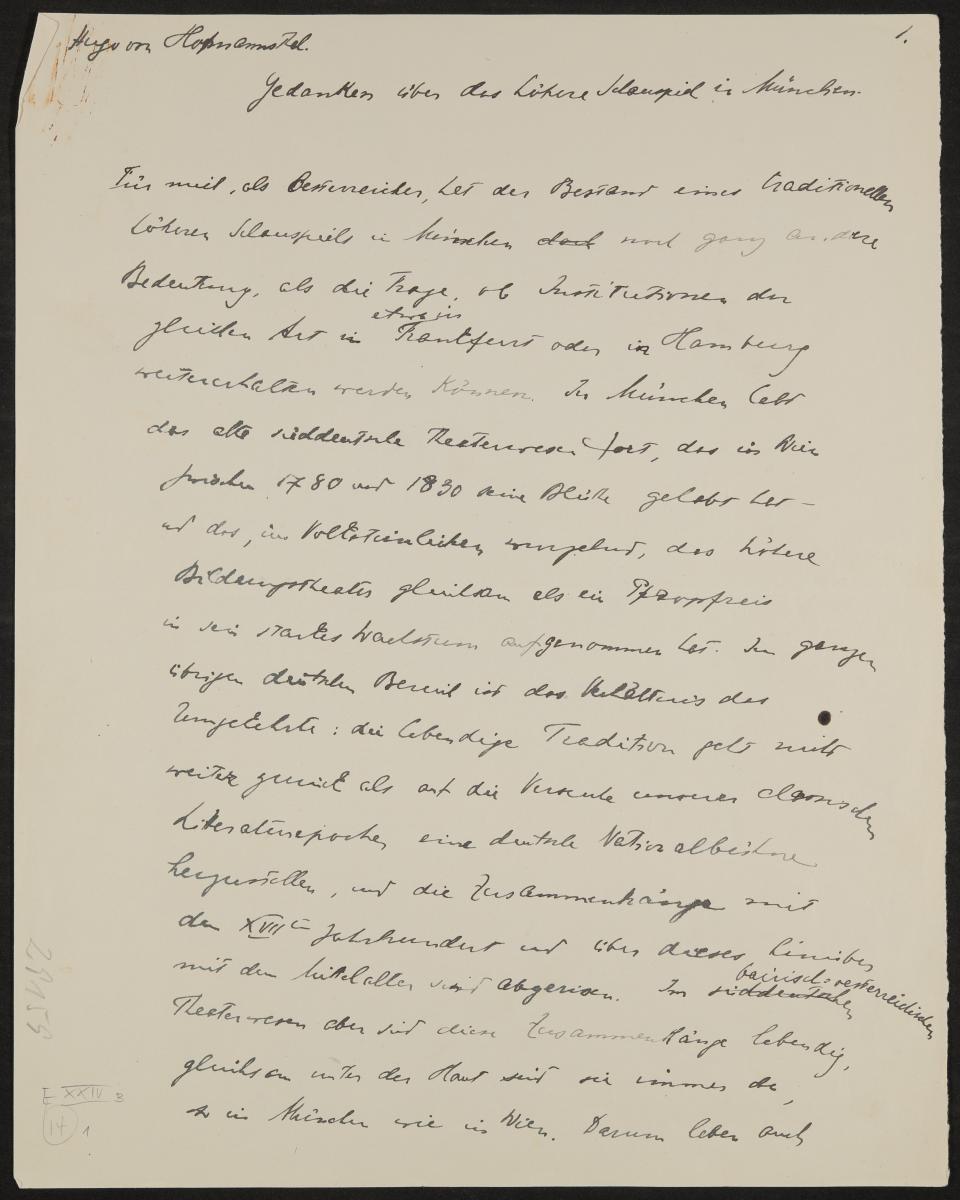 Hugo von Hofmannsthal.
1.
Gedanken über das höhere Schauspiel in München.
Für mich, als Oesterreicher, hat der Bestand eines traditionellen
höheren Schauspiels in München doch noch ganz andere
Bedeutung, als die Frage, ob Institutionen der
gleichen Art in etwa in Frankfurt oder in Hamburg
weitererhalten werden können. In München lebt
das alte süddeutsche Theaterwesen fort, das in Wien
zwischen 1780 und 1830 seine Blüte gehabt hat –
und das, im Volkstümlichen wurzelnd, das höhere
Bildungstheater gleichsam als ein Pfropfreis
in sein starkes Wachstum aufgenommen hat. Im ganzen
übrigen deutschen Bereich ist das Verhältnis das
Umgekehrte: die lebendige Tradition geht nicht
weiter zurück als auf die Versuche unserer classischen
Literaturepoche, eine deutsche Nationalbühne
herzustellen, und die Zusammenhänge mit
dem XVIIten Jahrhundert und über dieses hinüber
mit dem Mittelalter sind abgerissen. Im süddeutschen
bairisch-oesterreichischen
Theaterwesen aber sind diese Zusammenhänge lebendig,
gleichsam unter der Haut sind sie immer da,
so in München wie in Wien. Darum leben auch
29153
E XXIV 3
14
1